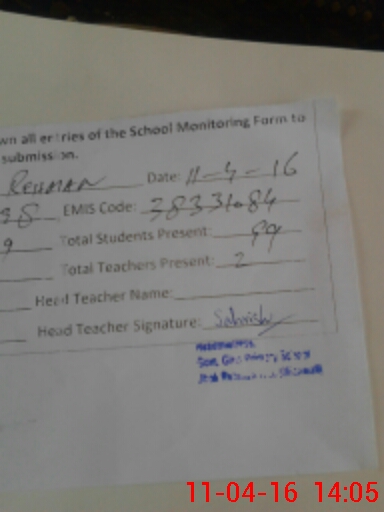 wn all entries of the School Monitoring Form to
submission.
REHMAN Date: 11-4-16
38 EMIS Code: 38331084
9 Total Students Present: 99
Total Teachers Present: 2
Head Teacher Name:
Head Teacher Signature: Sabrish
Govt. Girls Primary School
11-04-16 14:05